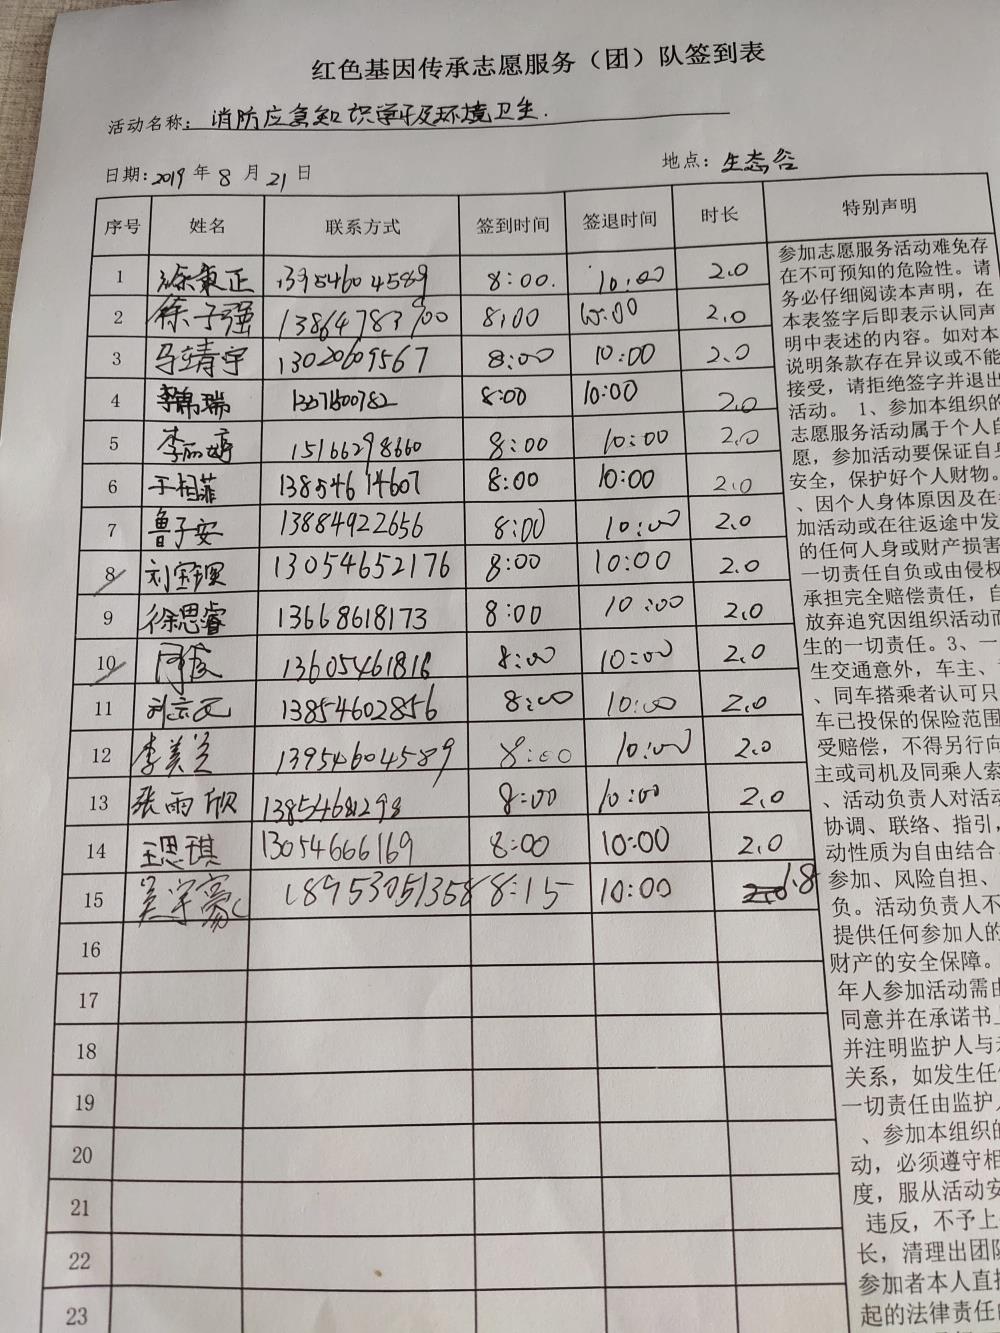 红色基因传承志愿服务（团）队签到表
活动名称：消防应急知识学习及环境卫生.
日期：2019年8月21日 地点：生态谷
序号 姓名 联系方式 签到时间 签退时间 时长 特别声明
1 徐秉正 13954604589 8:00. 10:00 2.0
2 徐子强 13864783900 8:00 10:00 2.0
3 马靖宇 13020609567 8:00 10:00 2.0
4 李锦瑞 8:00 10:00 2.0
5 李丽婷 15166298660 8:00 10:00 2.0
6 于相菲 13854614607 8:00 10:00 2.0
7 鲁子安 13884922656 8:00 10:00 2.0
8 13054652176 8:00 10:00 2.0
9 徐思睿 13668618173 8:00 10:00 2.0
10 13605461816 8:00 10:00 2.0
11 13854602856 8:00 10:00 2.0
12 李美兰 13954604589 8:00 10:00 2.0
13 张雨欣 13854681298 8:00 10:00 2.0
14 王思琪 13054666169 8:00 10:00 2.0
15 吴宇豪 18953051358 8:15 10:00 1.8
16
17
18
19
20
21
22
23
参加志愿服务活动难免存
在不可预知的危险性。请
务必仔细阅读本声明，在
本表签字后即表示认同声
明中表述的内容。如对本
说明条款存在异议或不能
接受，请拒绝签字并退出
活动。1、参加本组织的
志愿服务活动属于个人自
愿，参加活动要保证自身
安全，保护好个人财物。
、因个人身体原因及在
加活动或在往返途中发
的任何人身或财产损害
一切责任自负或由侵权
承担完全赔偿责任，自
放弃追究因组织活动而
生的一切责任。3、一
生交通意外，车主、
、同车搭乘者认可只
车已投保的保险范围
受赔偿，不得另行向
主或司机及同乘人索
、活动负责人对活动
协调、联络、指引，
动性质为自由结合
参加、风险自担、
负。活动负责人不
提供任何参加人的
财产的安全保障。
年人参加活动需由
同意并在承诺书上
并注明监护人与
关系，如发生任何
一切责任由监护人
、参加本组织的
动，必须遵守相
度，服从活动安
违反，不予上
长，清理出团队
参加者本人直接
起的法律责任